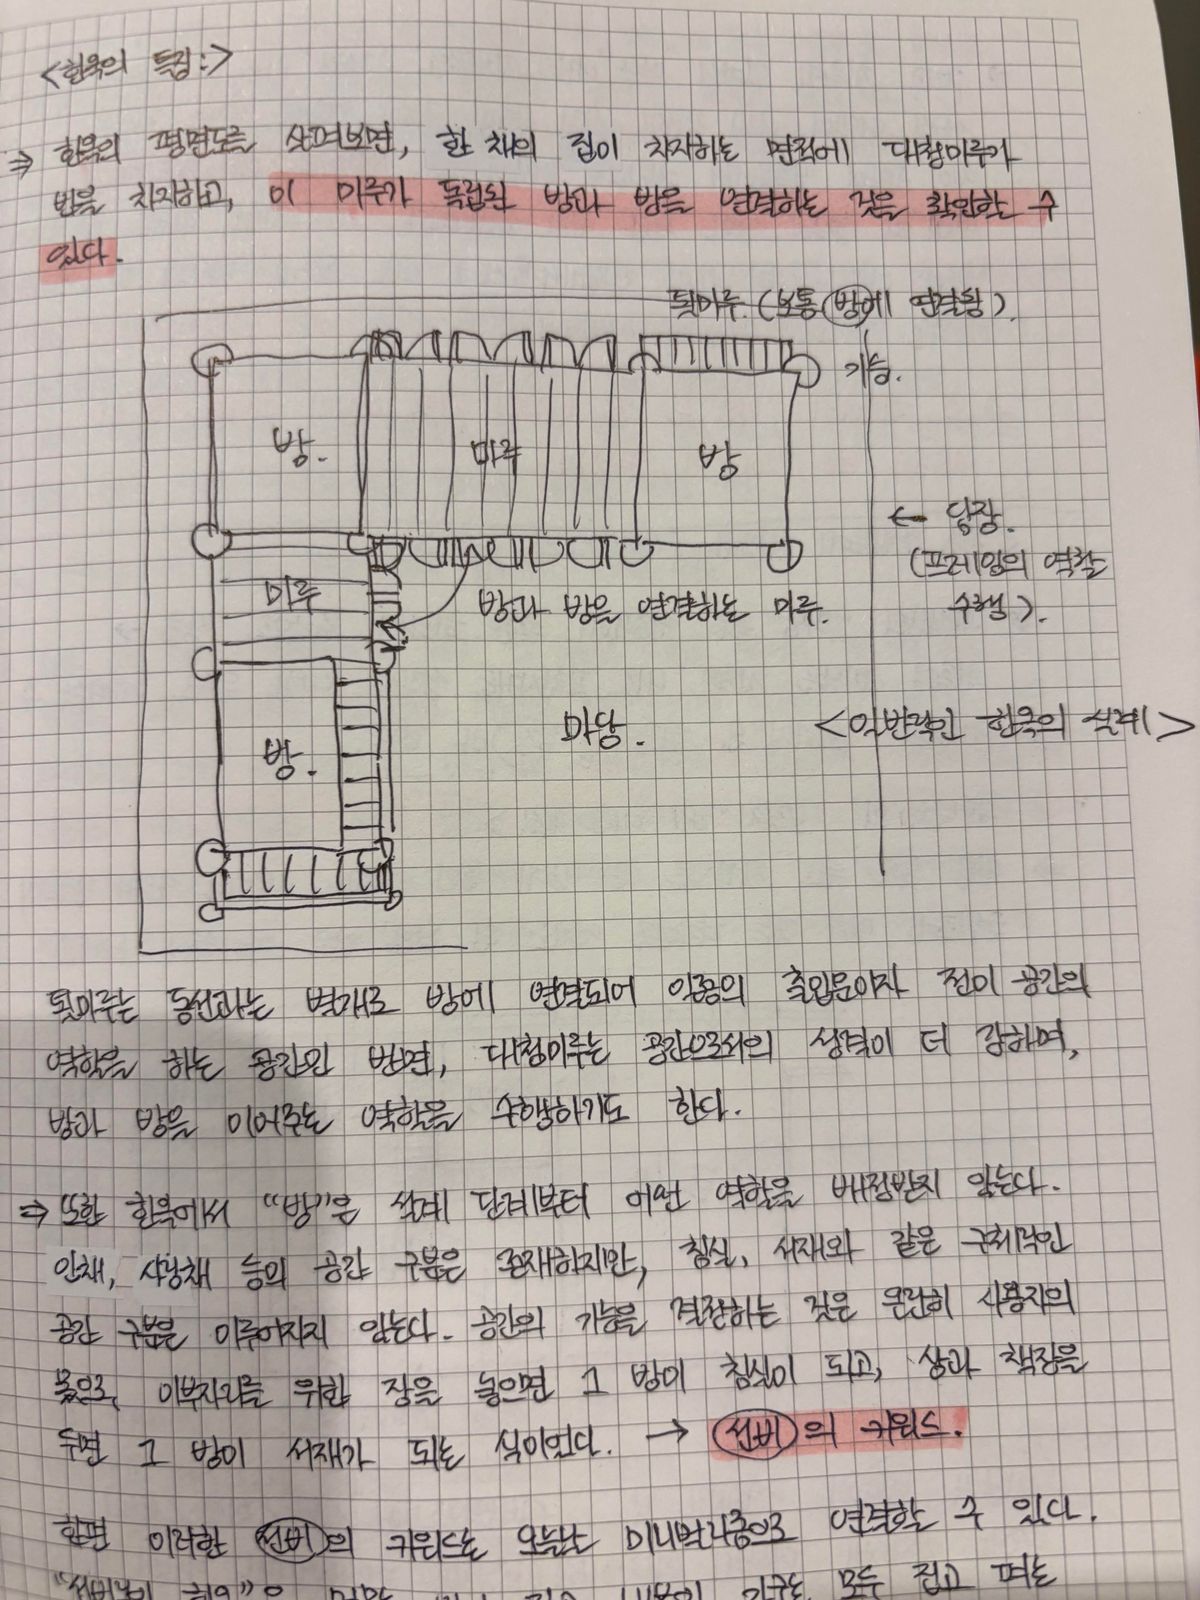 <한옥의 특징:>
⇒ 한옥의 평면도를 살펴보면, 한 채의 집이 차지하는 면적에 대청마루가
반을 차지하고, 이 마루가 독립된 방과 방을 연결하는 것을 확인할 수
있다.
툇마루. (보통 방에 연결됨).
기둥.
방.
마루
방
← 담장.
(프레임의 역할
수행).
마루
방과 방을 연결하는 마루.
마당.
<일반적인 한옥의 설계>
방.
툇마루는 동선과는 별개로 방에 연결되어 일종의 출입문이자 전이 공간의
역할을 하는 공간인 반면, 대청마루는 공간으로서의 성격이 더 강하며,
방과 방을 이어주는 역할을 수행하기도 한다.
⇒ 또한 한옥에서 “방”은 설계 단계부터 어떤 역할을 배정받지 않는다.
안채, 사랑채 등의 공간 구분은 존재하지만, 침실, 서재와 같은 구체적인
공간 구분은 이루어지지 않는다. 공간의 기능을 결정하는 것은 온전히 사용자의
몫으로, 이부자리를 위한 장을 놓으면 그 방이 침실이 되고, 상과 책장을
두면 그 방이 서재가 되는 식이었다. → 선비의 키워드.
한편 이러한 선비의 키워드는 오늘날 미니멀리즘으로 연결할 수 있다.
모두 접고 펴는